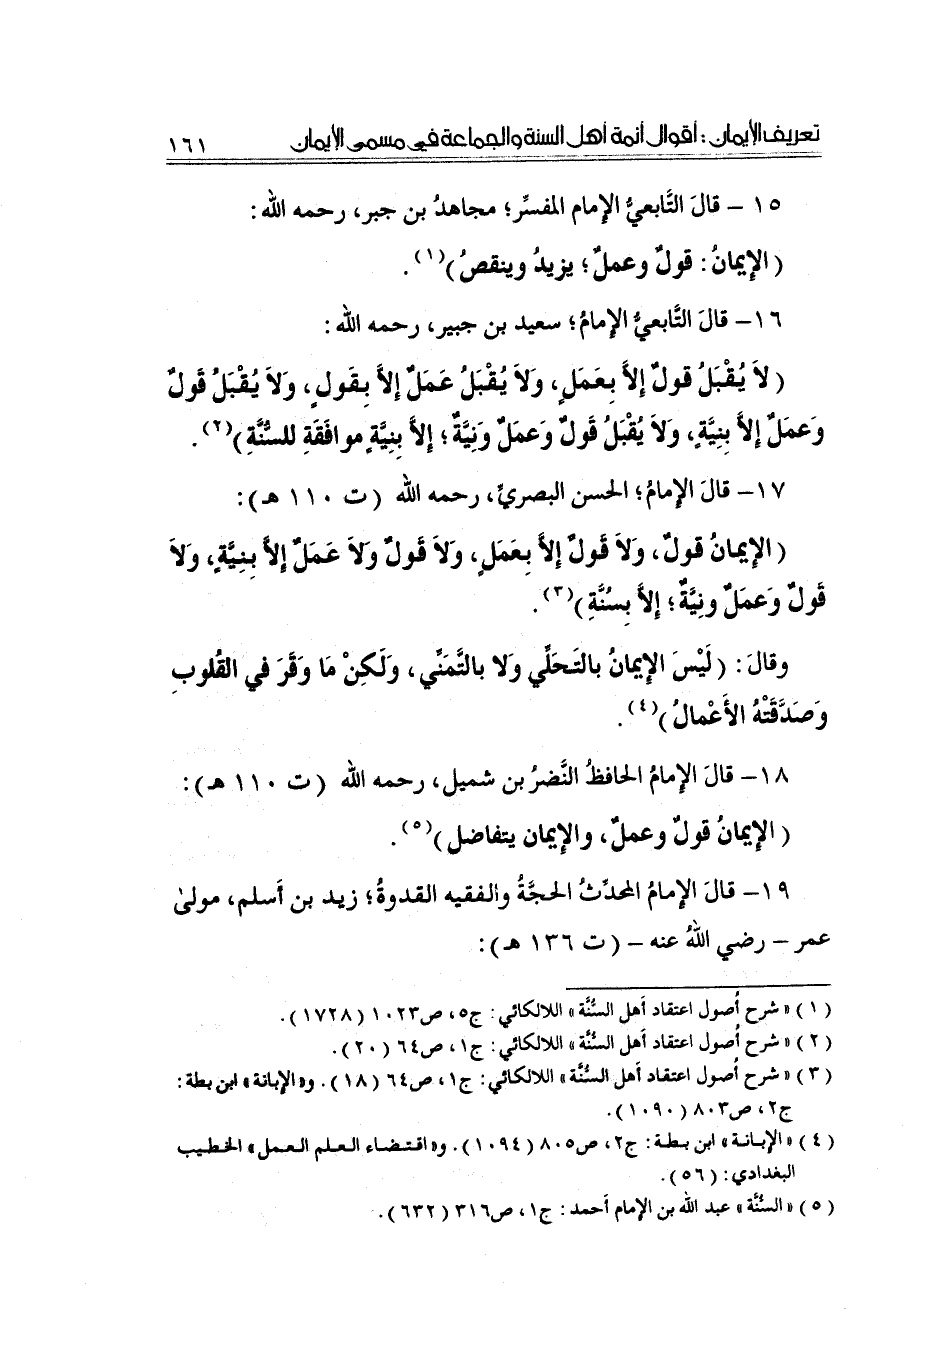 تعريف الإيمان : أقوال أئمة أهل السنة والجماعة في مسمى الإيمان ١٦١
١٥ – قالَ التَّابعيُّ الإمام المفسِّر؛ مجاهدُ بن جبر، رحمه الله:
(الإيمانُ: قولٌ وعملٌ؛ يزيدُ وينقصُ)(١).
١٦– قالَ التَّابعيُّ الإمامُ؛ سعيد بن جبير، رحمه الله:
(لاَ يُقْبَلُ قولٌ إلاَّ بِعَمَلٍ، ولاَ يُقْبَلُ عَمَلٌ إلاَّ بِقَولٍ، ولاَ يُقْبَلُ قَولٌ
وَعَملٌ إلاَّ بنِيَّة، ولاَ يُقْبَلُ قَولٌ وَعملٌ وَنِيَّةٌ؛ إلاَّ بنِيَّةٍ موافَقَةِ للسُّنَّةِ)(٢).
١٧– قالَ الإمامُ؛ الحسن البصريِّ، رحمه الله (ت ١١٠ هـ):
(الإيمانُ قولٌ، ولاَ قَولٌ إلاَّ بِعَمَلٍ، ولاَ قَولٌ ولاَ عَمَلٌ إلاَّ بِنِيَّةٍ، ولاَ
قَولٌ وَعَملٌ ونِيَّةٌ؛ إلاَّ بسُنَّةِ)(٣).
وقالَ: (لَيْسَ الإيمانُ بالتَحَلِّي ولا بالتَّمَنِّي، ولَكِنْ مَا وَقَرَ في القُلوبِ
وَصَدَّقَتْهُ الأَعْمالُ)(٤).
١٨– قالَ الإمامُ الحافظُ النَّضرُ بن شميل، رحمه الله (ت ١١٠ هـ):
(الإيمانُ قولٌ وعملٌ، والإيمان يتفاضل)(٥).
١٩– قالَ الإمامُ المحدِّثُ الحجَّةُ والفقيه القدوةُ؛ زيد بن أسلم، مولىٰ
عمر – رضي اللهُ عنه – (ت ١٣٦ هـ):
(١) «شرح أصول اعتقاد أهل السُّنَّة» اللالكائي: ج٥، ص١٠٢٣ (١٧٢٨).
(٢) «شرح أصول اعتقاد أهل السُّنَّة» اللالكائي: ج١، ص٦٤ (٢٠).
(٣) «شرح أصول اعتقاد أهل السُّنَّة» اللالكائي: ج١، ص٦٤ (١٨). و«الإبانة» ابن بطة:
ج٢، ص٨٠٣ (١٠٩٠).
(٤) «الإبانة» ابن بطة: ج٢، ص٨٠٥ (١٠٩٤). و«اقتضاء العلم العمل» الخطيب
البغدادي: (٥٦).
(٥) «السُّنَّة» عبد الله بن الإمام أحمد: ج١، ص٣١٦ (٦٣٢).